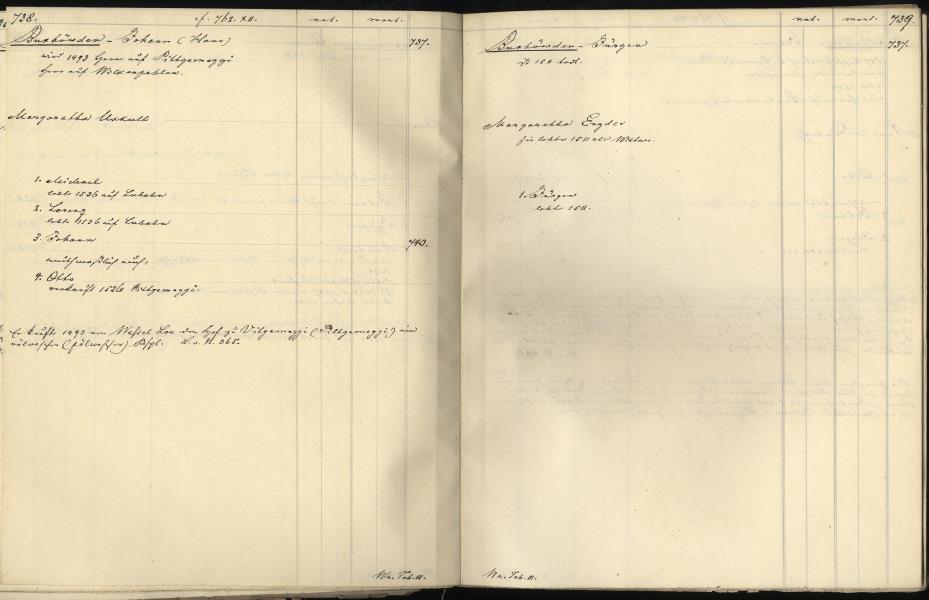 738. cf. 762. XII. nat. mort.
Buxhöwden - Johann (Hans) 737.
wird 1493 Herr auf Pittgemeggi
Herr auf Wolkenpahlen.
Margaretha Uxkull
1. Michael
lebte 1536 auf Lubahn
2. Lorenz
lebte 1536 auf Lubahn
3. Johann 740.
muthmaßlich auch:
4. Otto
verkauft 1526 Pittgemeggi.
Er kauft 1493 von Wessel Loe den Hof zu Vitgemeggi (Pittgemeggi) im
(pölweschen) Kspl. L. v. N. 365.
Wr. Tab. III.
nat. mort. 739.
Buxhöwden - Jürgen 737.
ist 1511 todt.
Margaretha Engdes
sie lebte 1511 als Wittwe.
1. Jürgen
lebte 1511.
Wr. Tab. III.